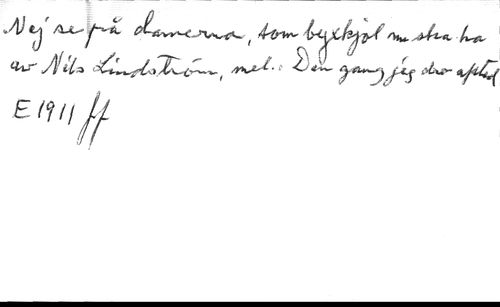 Nej se på damerna, som byxkjol nu ska ha
av Nils Lindström, mel.: Den gang jeg drog afsted
E 1911 ff